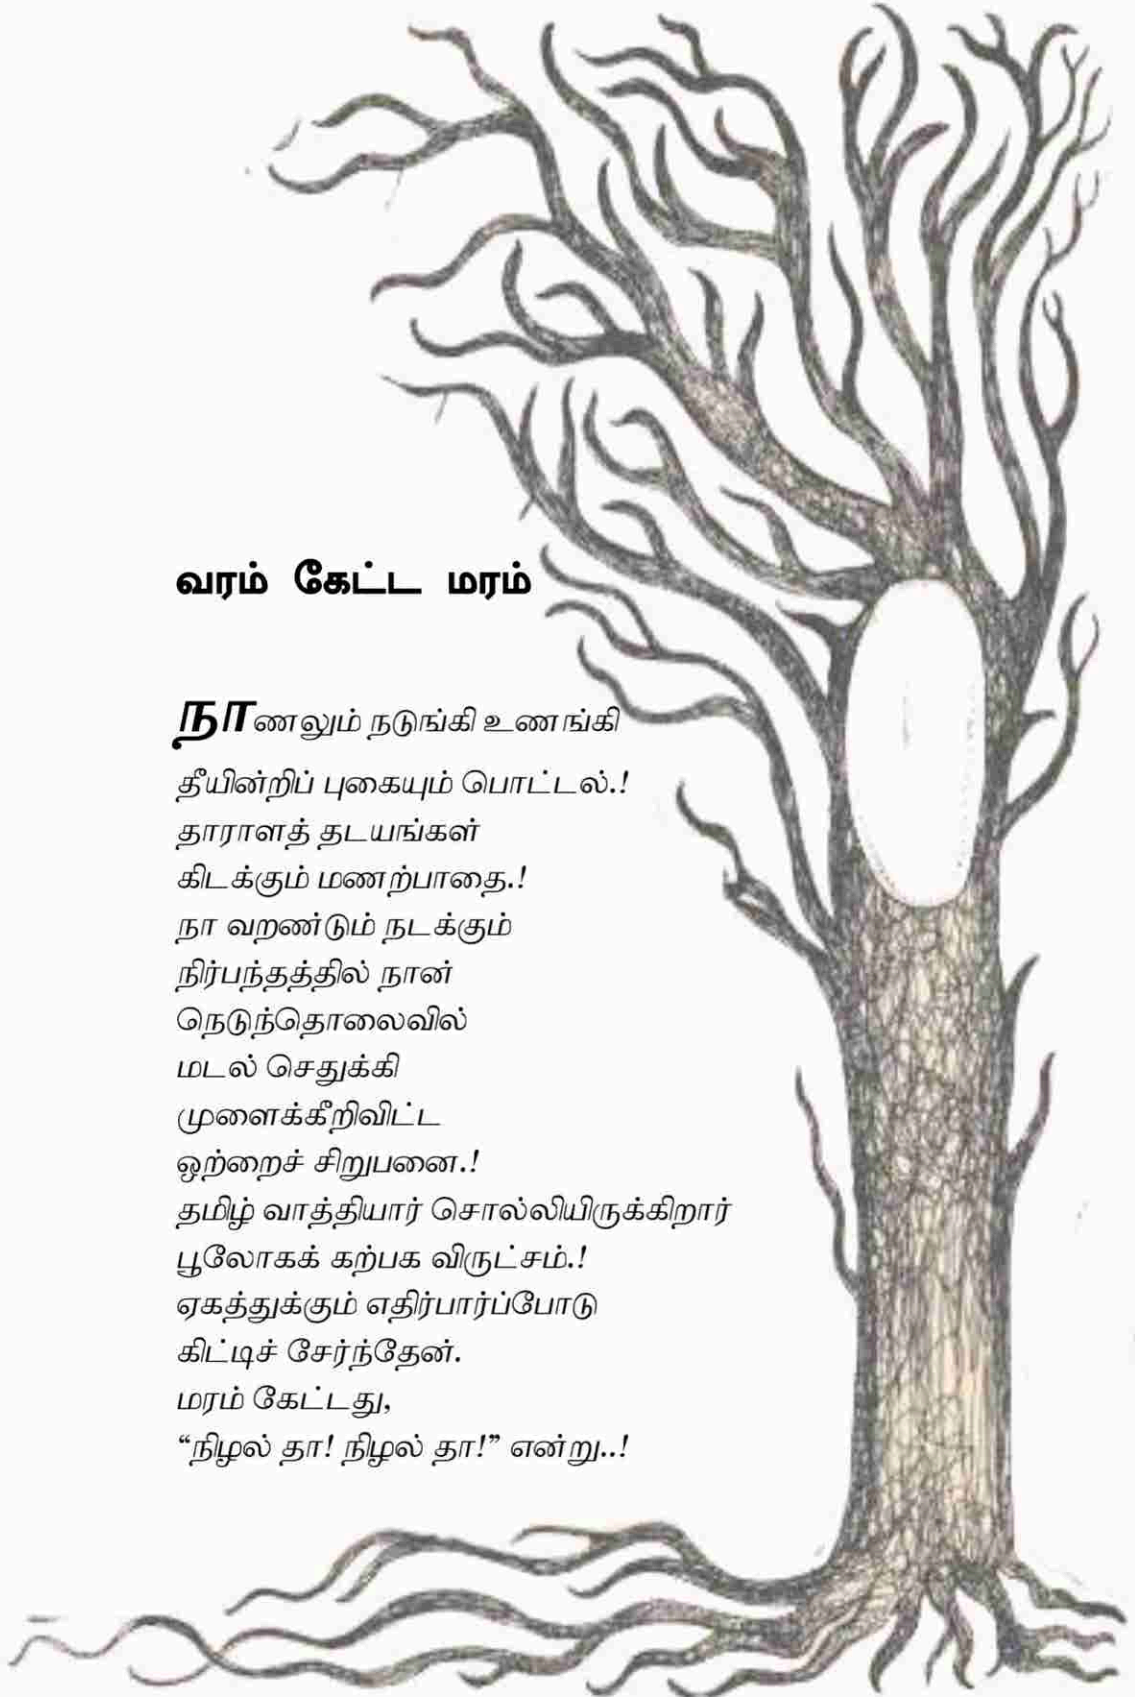 வரம் கேட்ட மரம்
நாணலும் நடுங்கி உணங்கி
தீயின்றிப் புகையும் பொட்டல்.!
தாராளத் தடயங்கள்
கிடக்கும் மணற்பாதை.!
நா வறண்டும் நடக்கும்
நிர்பந்தத்தில் நான்
நெடுந்தொலைவில்
மடல் செதுக்கி
முளைக்கீறிவிட்ட
ஒற்றைச் சிறுபனை.!
தமிழ் வாத்தியார் சொல்லியிருக்கிறார்
பூலோகக் கற்பக விருட்சம்.!
ஏகத்துக்கும் எதிர்பார்ப்போடு
கிட்டிச் சேர்ந்தேன்.
மரம் கேட்டது,
“நிழல் தா! நிழல் தா!” என்று..!